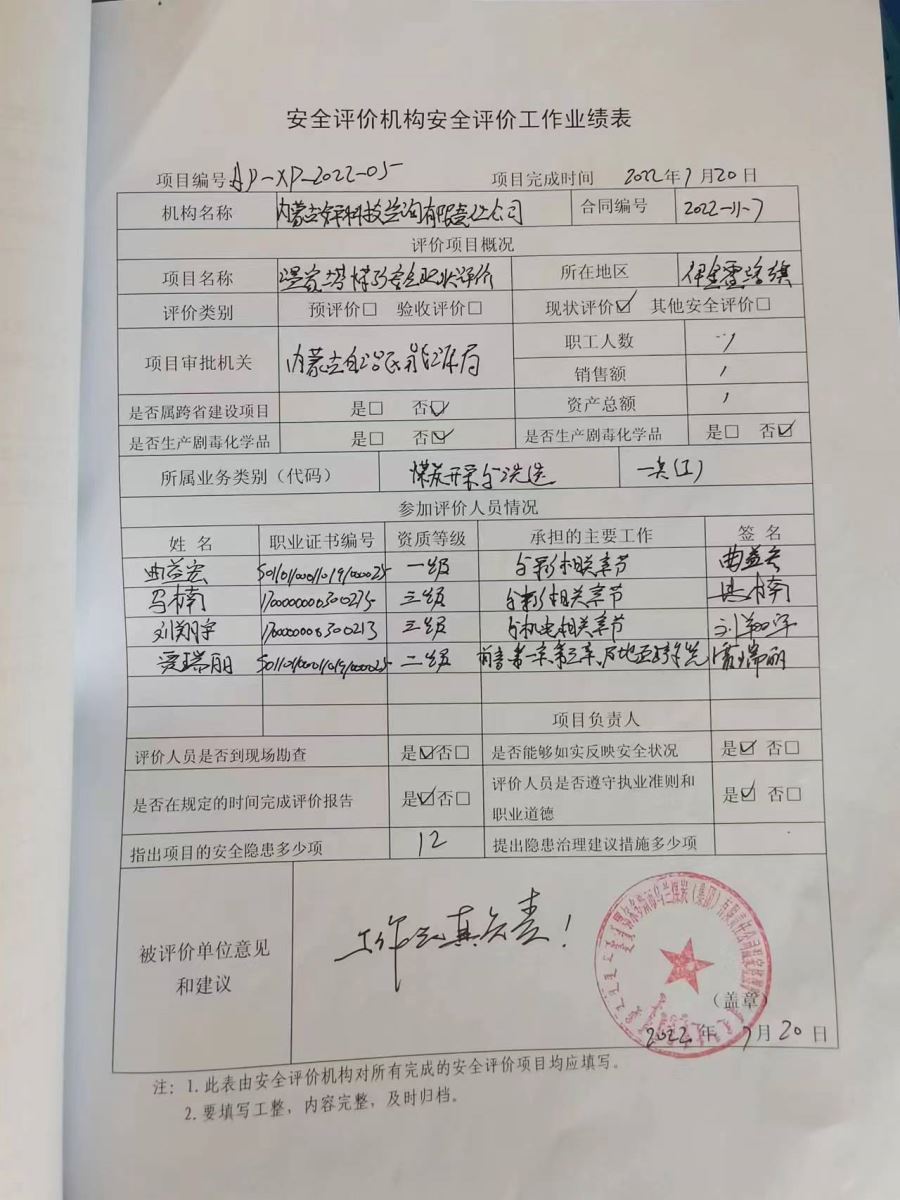 安全评价机构安全评价工作业绩表
项目编号 AP-XP-2022-05 项目完成时间 2022年7月20日
机构名称 内蒙古 科技咨询有限责任公司 合同编号 2022-11-7
评价项目概况
项目名称 温家塔煤矿安全现状评价 所在地区 伊金霍洛旗
评价类别 预评价□ 验收评价□ 现状评价☑ 其他安全评价□
项目审批机关 内蒙古自治区能源局 职工人数 /
销售额 /
是否属跨省建设项目 是□ 否☑ 资产总额 /
是否生产剧毒化学品 是□ 否☑ 是否生产剧毒化学品 是□ 否☑
所属业务类别（代码） 煤炭开采与洗选
参加评价人员情况
姓名 职业证书编号 资质等级 承担的主要工作 签名
曲益宏 一级 相关章节 曲益宏
马楠 1700000000300275 三级 相关章节 马楠
刘翔宇 1700000000300213 三级 与机电相关章节 刘翔宇
贾瑞丽 二级 前言、第一章、第三章、 贾瑞丽
项目负责人
评价人员是否到现场勘查 是☑否□ 是否能够如实反映安全状况 是☑ 否□
是否在规定的时间完成评价报告 是☑否□ 评价人员是否遵守执业准则和
职业道德 是☑ 否□
指出项目的安全隐患多少项 12 提出隐患治理建议措施多少项
被评价单位意见
和建议
工作认真负责！
（盖章）
2022年7月20日
注：1.此表由安全评价机构对所有完成的安全评价项目均应填写。
2.要填写工整，内容完整，及时归档。